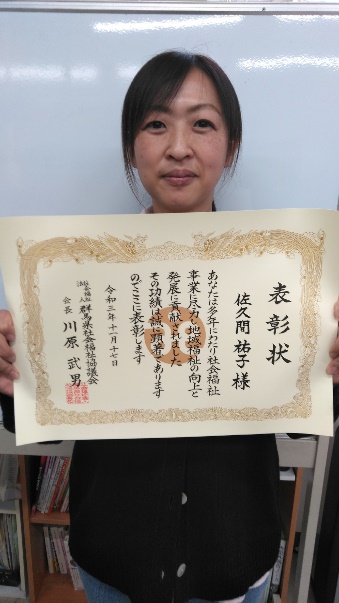 表彰状
佐久間 祐子 様
あなたは多年にわたり社会福祉
事業に尽力し地域福祉の向上と
発展に貢献されました
その功績は誠に顕著であります
のでここに表彰します
令和三年十一月十七日
社会福祉法人 群馬県社会福祉協議会
会長 川原 武男